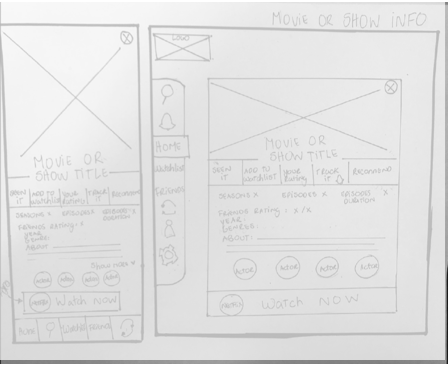 MOVIE OR SHOW INFO
MOVIE OR
SHOW TITLE
SEEN IT
ADD TO WATCHLIST
YOUR RATING
TRACK IT
RECOMMEND
SEASONS X
EPISODES
EPISODES X DURATION
FRIENDS RATING:
YEAR:
GENRE:
ABOUT:
SHOW MORE
ACTOR
ACTOR
ACTOR
ACTOR
WATCH NOW
LOGO
HOME
WATCHLIST
FRIENDS
MOVIE OR
SHOW TITLE
SEEN IT
ADD TO WATCHLIST
YOUR RATING
TRACK IT
RECOMMEND
SEASONS X
EPISODES X
EPISODES X DURATION
FRIENDS RATING: X/X
YEAR:
GENRE:
ABOUT:
ACTOR
ACTOR
ACTOR
ACTOR
WATCH NOW